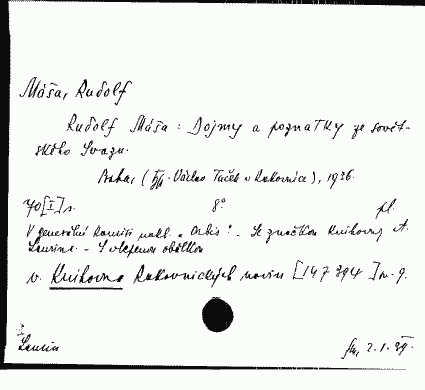 Máša, Rudolf
Rudolf Máša: Dojmy a poznatky ze sovět-
ského Svazu.
Praha, (Václav Tuček v Rakovníce), 1936.
70 [I] s. 8° pl.
V generální komisi nakl. „Orbis". - Se značkou Knihovny A.
Laurina. - S vlepenou obálkou
v. Knihovna Rakovnických novin [147394] n. 9.
Laurin
2.1.